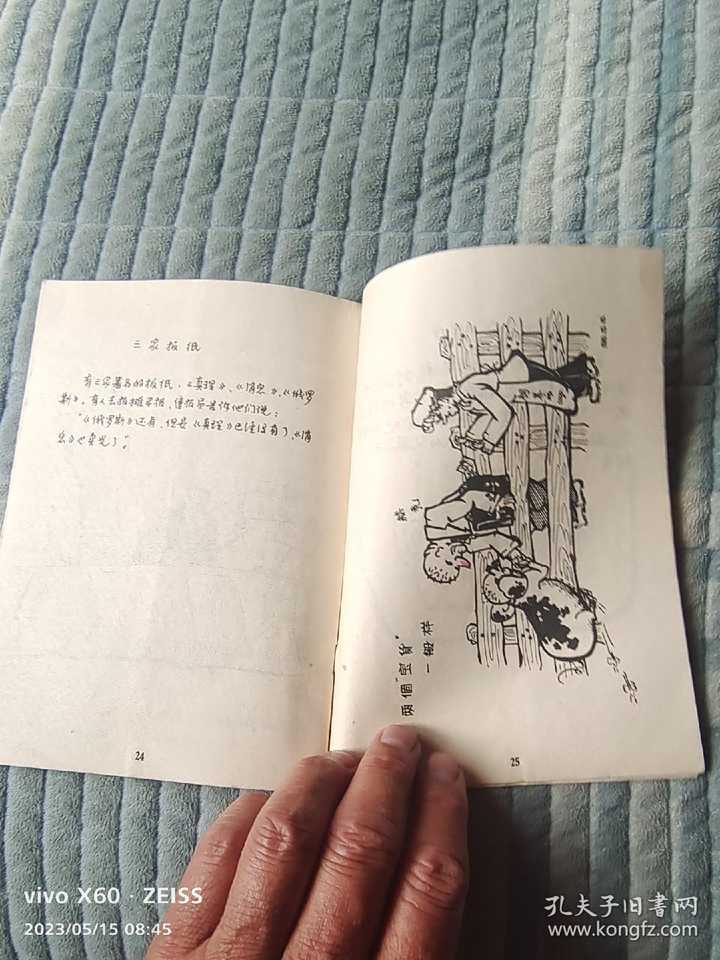 三家报纸
有三家著名的报纸,《真理》、《消息》、《俄罗
斯》。有人去报摊买报,售报员告诉他们说:
"《俄罗斯》还有,但是《真理》已经没有了,《消
息》也卖光了"。
24
两個"宝货"
一般样
25
vivo X60 · ZEISS
2023/05/15 08:45
孔夫子旧書网
www.kongfz.com